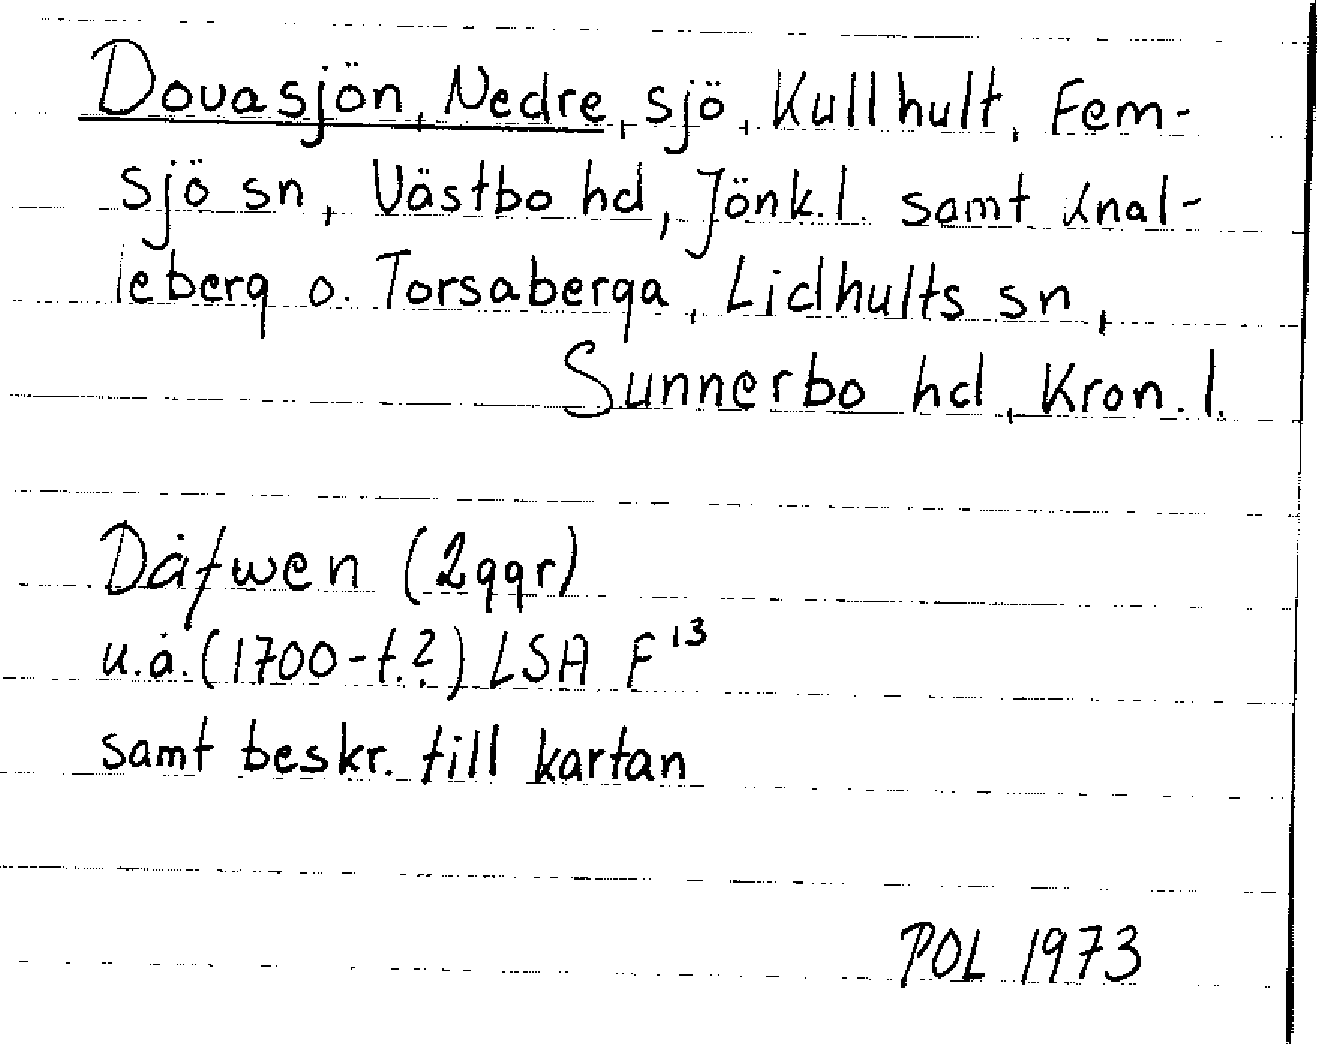 Dovasjön, Nedre, sjö, Kullhult, Fem-
sjö sn, Västbo hd, Jönk.l. samt Knal-
leberg o. Torsaberga, Lidhults sn,
Sunnerbo hd, Kron.l.
Dåfwen (2ggr)
u.å. (1700-t.?) LSA F¹³
samt beskr. till kartan
POL 1973